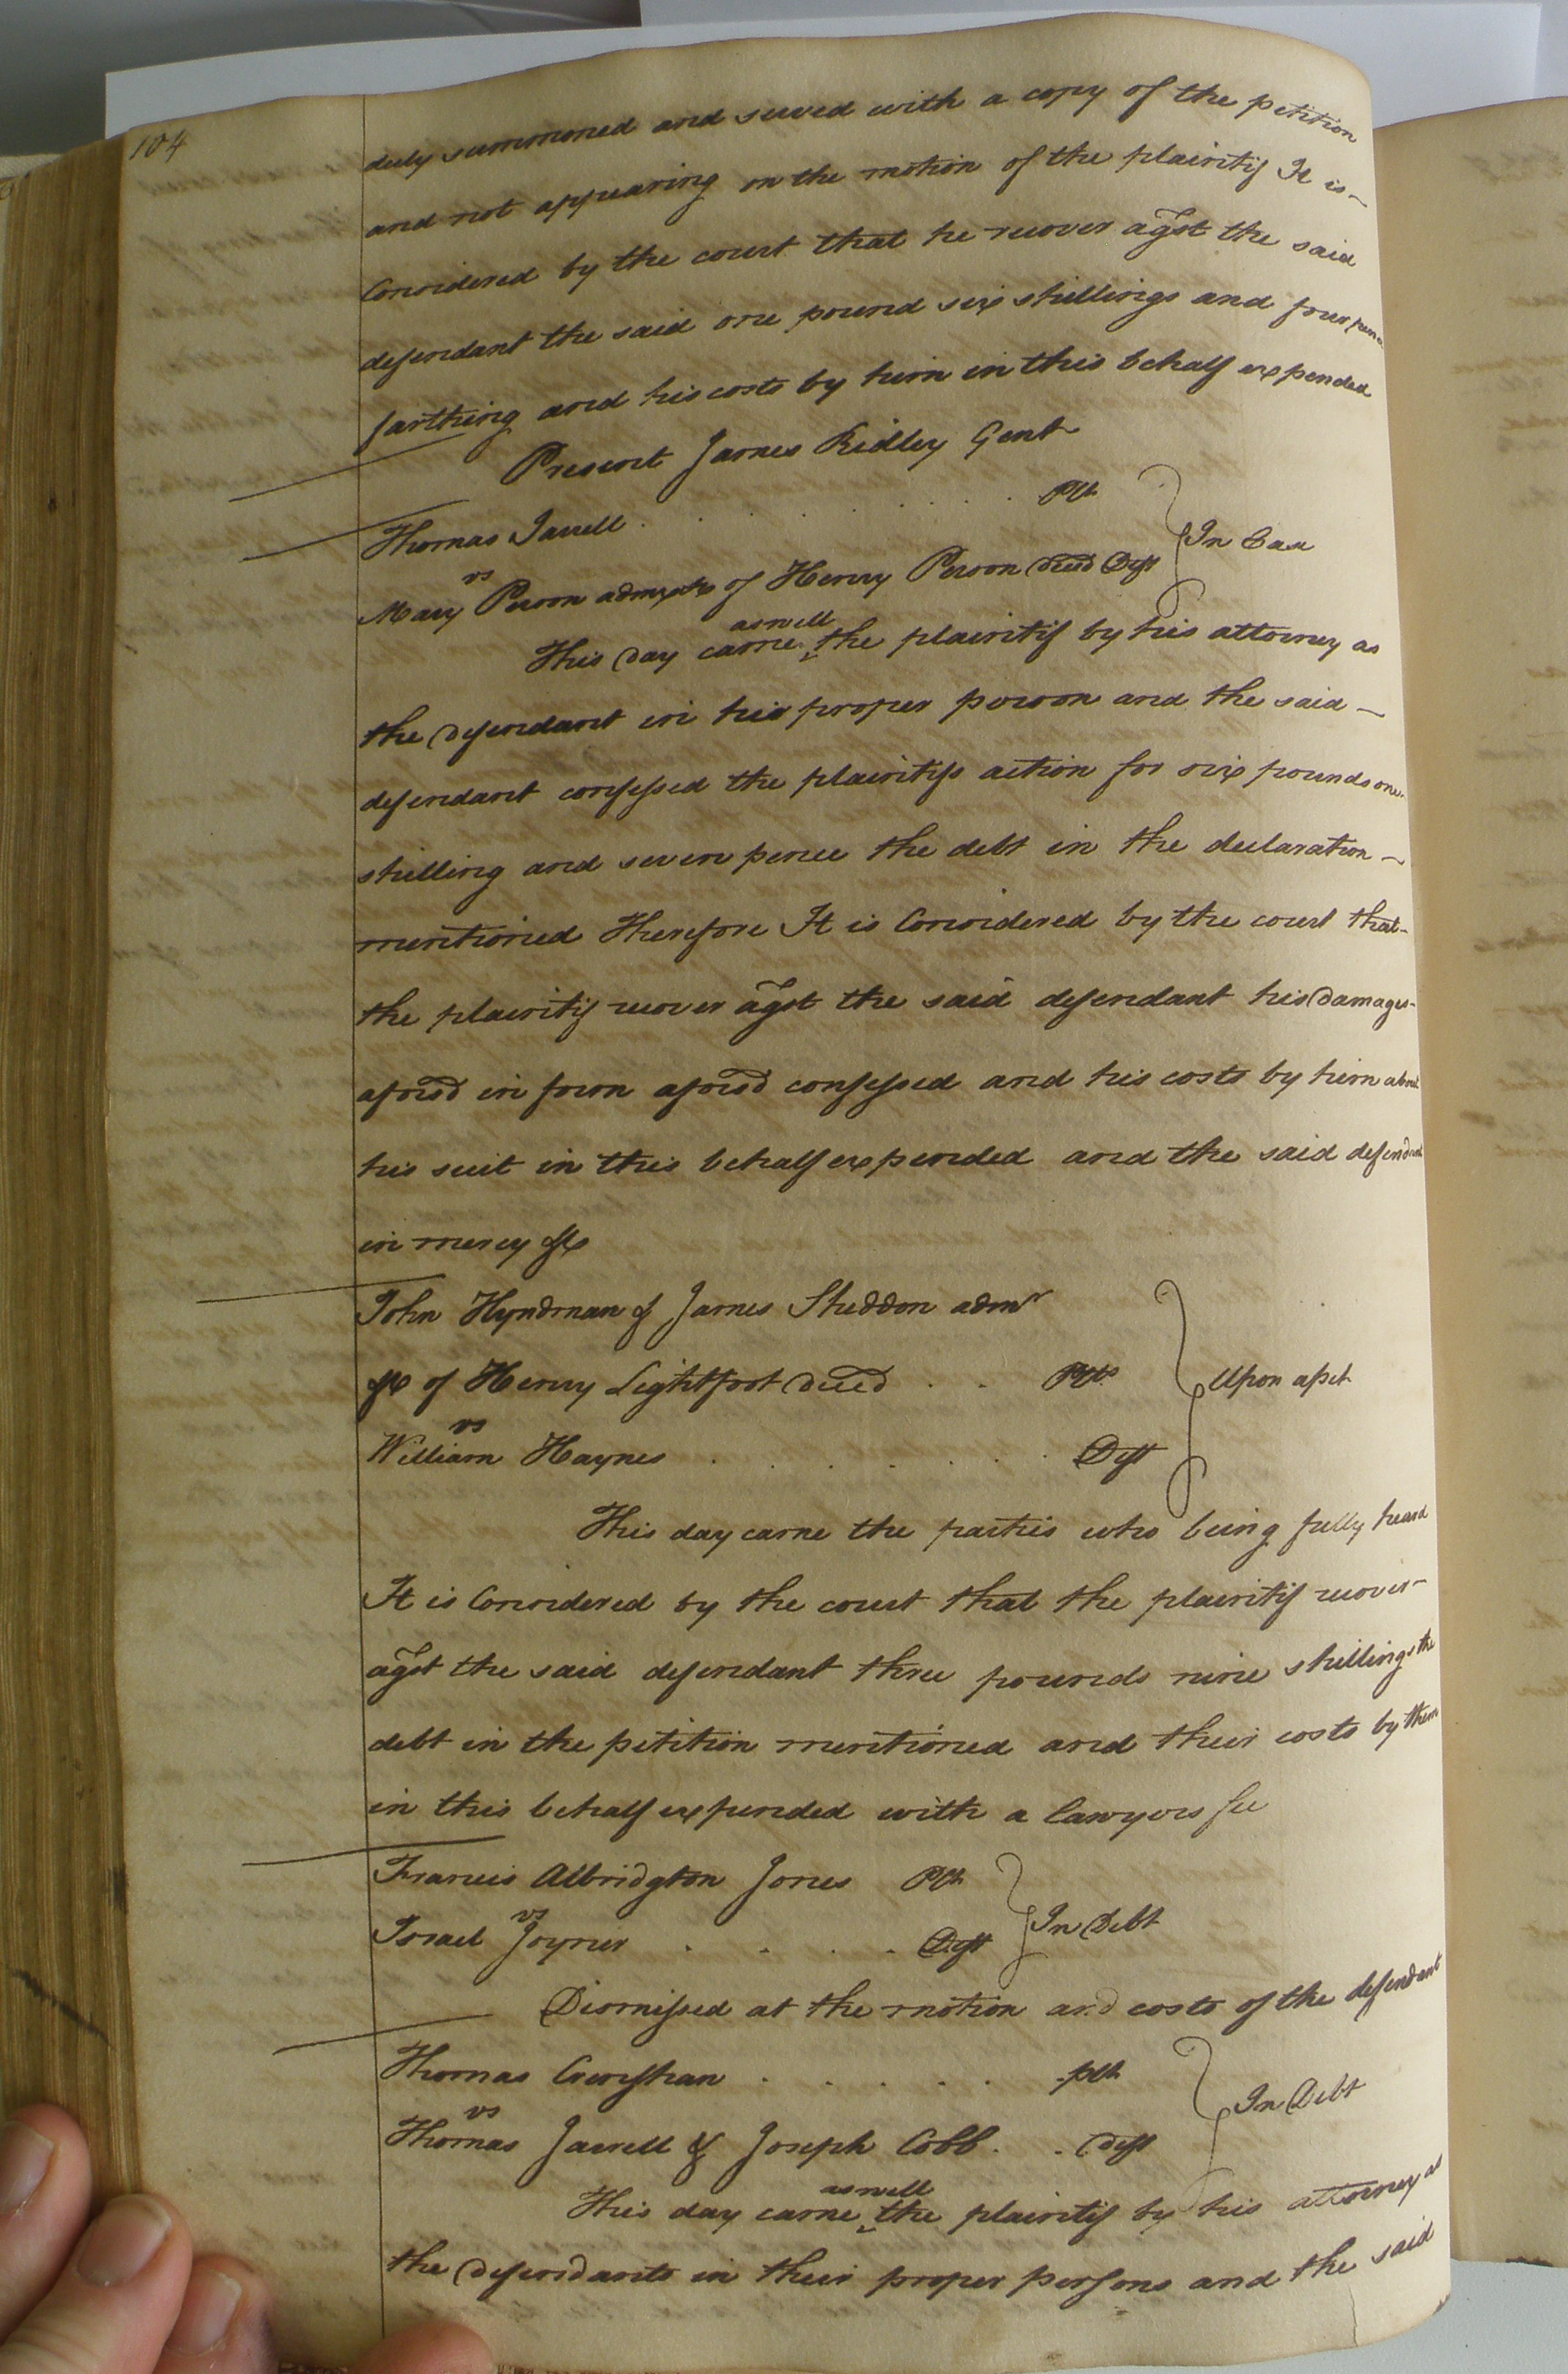 104
duly summoned and served with a copy of the petition
and not appearing on the motion of the plaintif It is
Considered by the court that he recover agst the said
defendant the said one pound six shillings and four pence
farthing and his costs by him in this behalf expended
Present James Ridley Gent
Thomas Jarrell . . . . . . Plt
vs
In Case
Mary Person admx &c of Henry Person decd Deft
aswell
This day came ‸ the plaintif by his attorney as
the defendant in his proper person and the said
defendant confessed the plaintifs action for six pounds one
shilling and seven pence the debt in the declaration
mentioned Therefore It is Considered by the court that
the plaintif recover agst the said defendant his damages
aforsd in form aforsd confessed and his costs by him about
his suit in this behalf expended and the said defendant
in mercy &c
John Hyndman & James Sheddon admr
&c of Henry Lightfoot decd . . Plts
Upon a pet
vs
William Haynes . . . . . . . Deft
This day came the parties who being fully heard
It is Considered by the court that the plaintif recover
agst the said defendant three pounds nine shillings the
debt in the petition mentioned and their costs by them
in this behalf expended with a lawyers fee
Francis Albridgton Jones Plt
vs
In Debt
Israel Joyner . . . . Deft
Dismissed at the motion and costs of the defendant
Thomas . . . . . plt
vs
In Debt
Thomas Jarrell & Joseph Cobb . . deft
aswell
This day came ‸ the plaintif by his attorney as
the defendants in their proper persons and the said